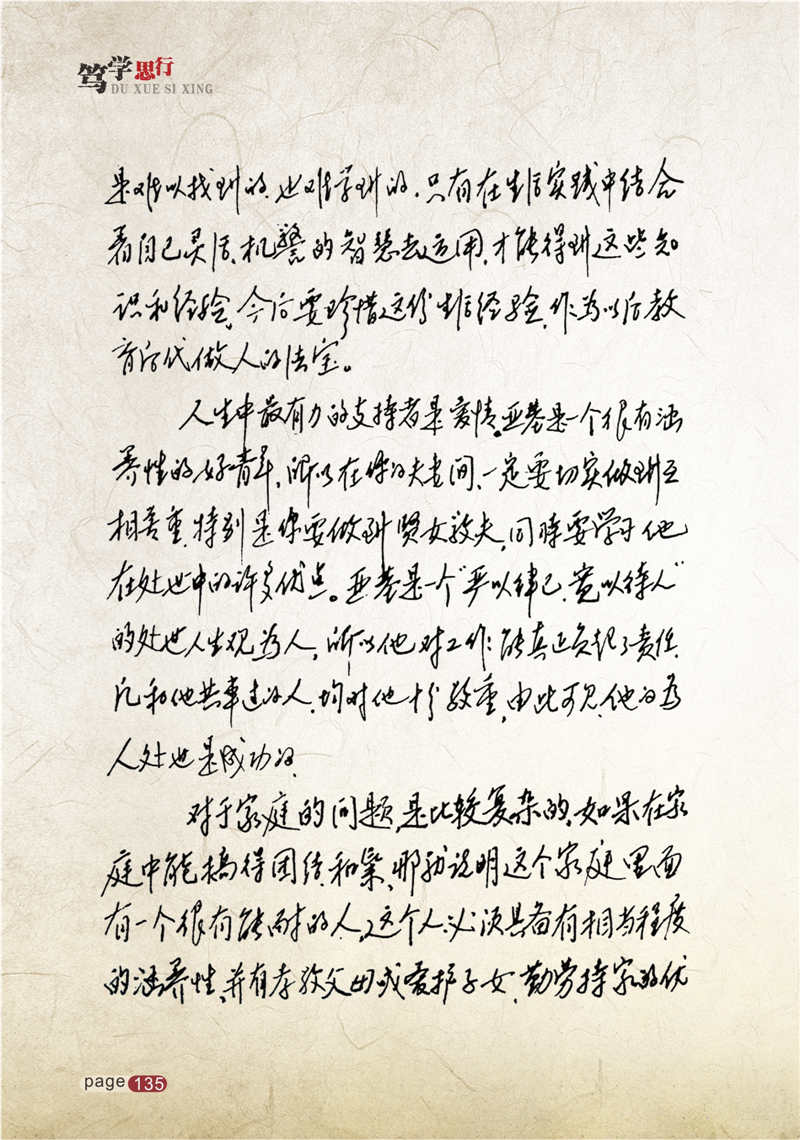 笃学思行
DU XUE SI XING
是难以找到的,也难学到的,只有在生活实践中结合
着自己灵活、机警的智慧去运用,才能得到这些知
识和经验,今后要珍惜这份生活经验,作为以后教
育后代做人的法宝。
人生中最有力的支持者是爱情。亚基是一个很有涵
养性的好青年,所以在你的夫妻间,一定要切实做到互
相尊重,特别是你要做到贤女敬夫,同时要学习他
在处世中的许多优点。亚基是一个“严以律己,宽以待人”
的处世人生观为人,所以他对工作能真正负起了责任,
凡和他共事过的人,均对他十分敬重,由此可见,他的为
人处世是成功的。
对于家庭的问题,是比较复杂的,如果在家
庭中能搞得团结和气,那就说明这个家庭里面
有一个很有能耐的人,这个人必须具备有相当程度
的涵养性,并有孝敬父母或爱护子女,勤劳持家的优
page 135